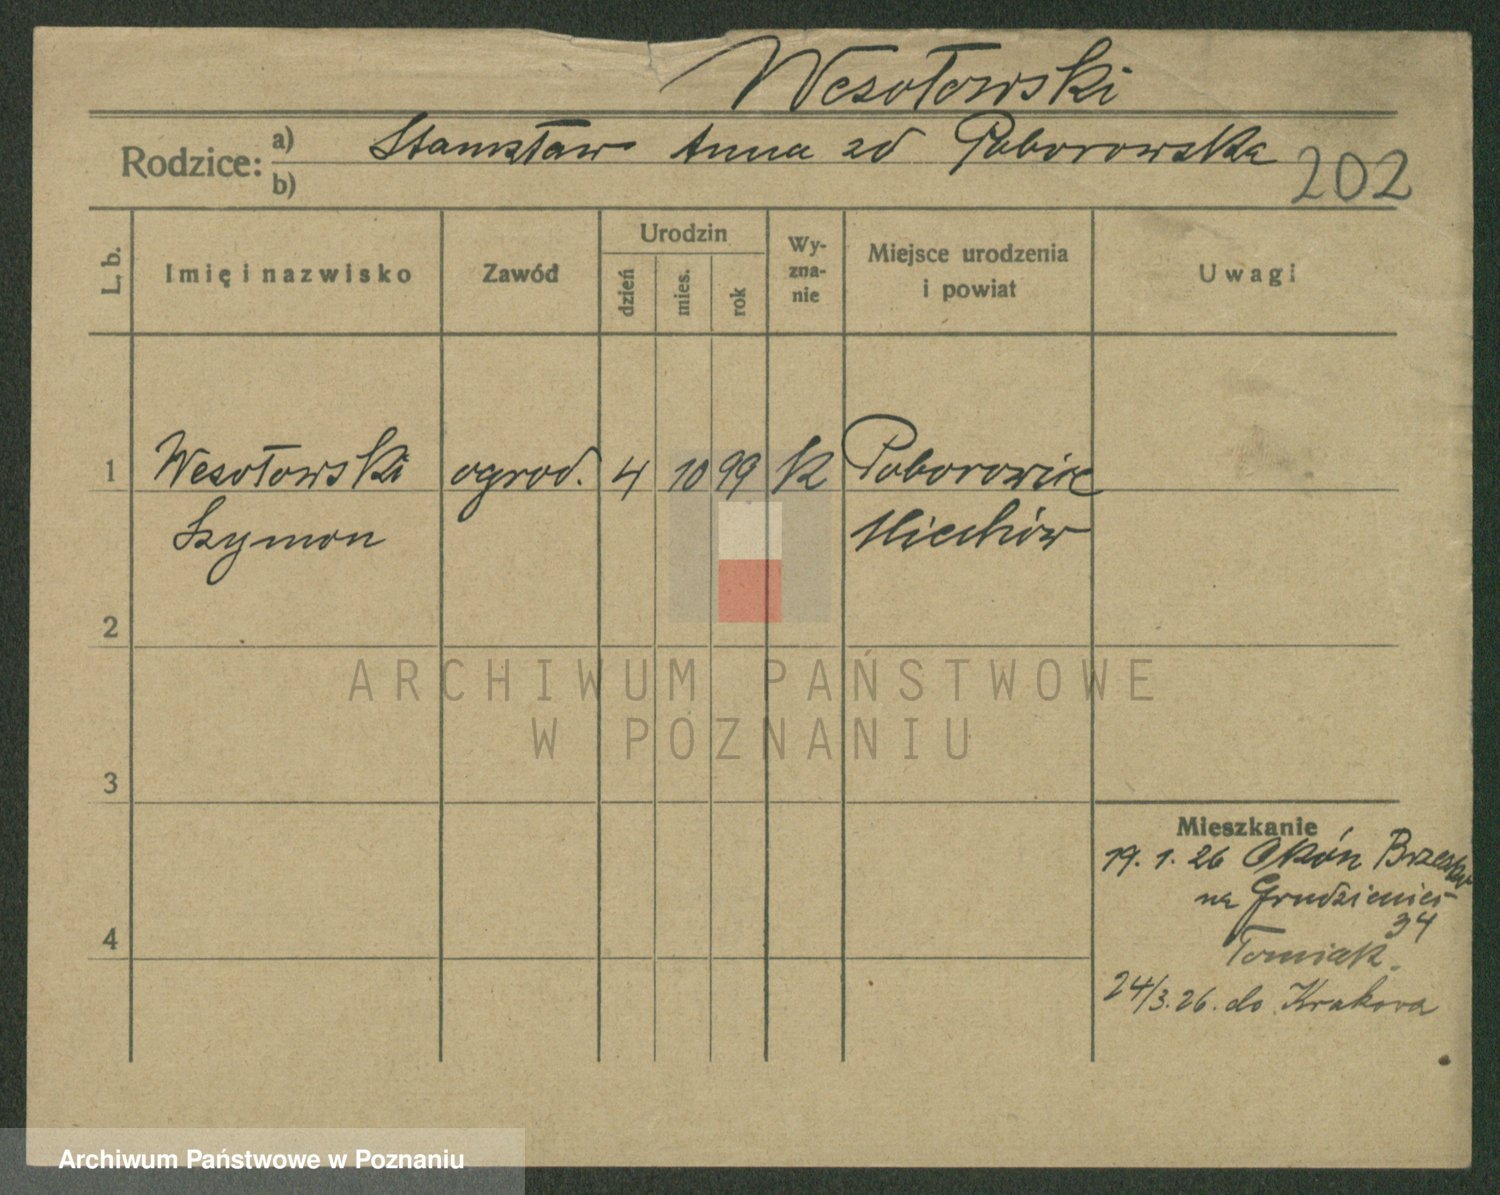 Wesołowski
Rodzice: a) Stanisław Anna zd Poborowska
b)
202
L. b.
Imię i nazwisko
Zawód
Urodzin
dzień
mies.
rok
Wy-
zna-
nie
Miejsce urodzenia
i powiat
Uwagi
1 Wesołowski ogrod. 4 10 99 k Poborowice
Szymon Miechów
2
3
4
Mieszkanie
19. 1. 26 Okón
na Grudzieniec
34
Tomiak.
24/3. 26. do Krakova
ARCHIWUM PAŃSTWOWE
W POZNANIU
Archiwum Państwowe w Poznaniu